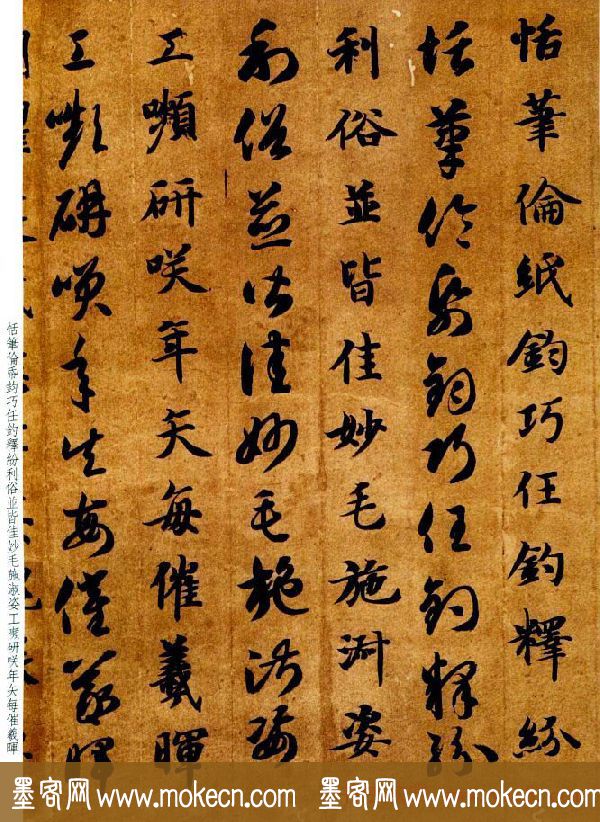 恬筆倫紙鈞巧任釣釋紛
恬筆倫紙鈞巧任釣釋紛
利俗並皆佳妙毛施淑姿
利俗並皆佳妙毛施淑姿
工嚬研咲年矢每催羲暉
工嚬研咲年矢每催羲暉
恬筆倫帋鈞巧任釣釋紛利俗並皆佳妙毛施淑姿工嚬研咲年矢每催羲暉
墨客网 www.mokecn.com 墨客网 www.mokecn.com